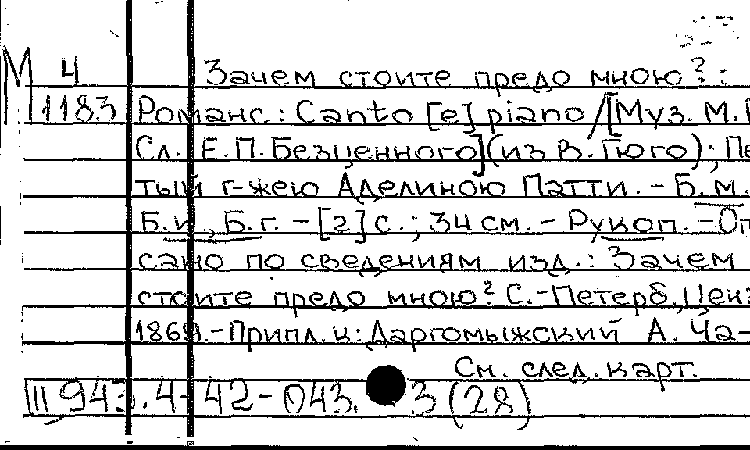 М 4 Зачем стоите предо мною? :
1183 Романс : Canto [e] piano / [Муз. М.
Сл. Е.П. Безценного] (из В. Гюго) ; Пе
тый г-жею Аделиною Патти. - Б. м.
Б. и., Б. г. - [2] с. ; 34 см. - Рукоп. - Оп
сано по сведениям изд. : Зачем
стоите предо мною? С.-Петерб., Ценз
- Припл. к: Даргомыжский А. Ча-
См. след. карт.
III 943.4-42-043. 3 (28)